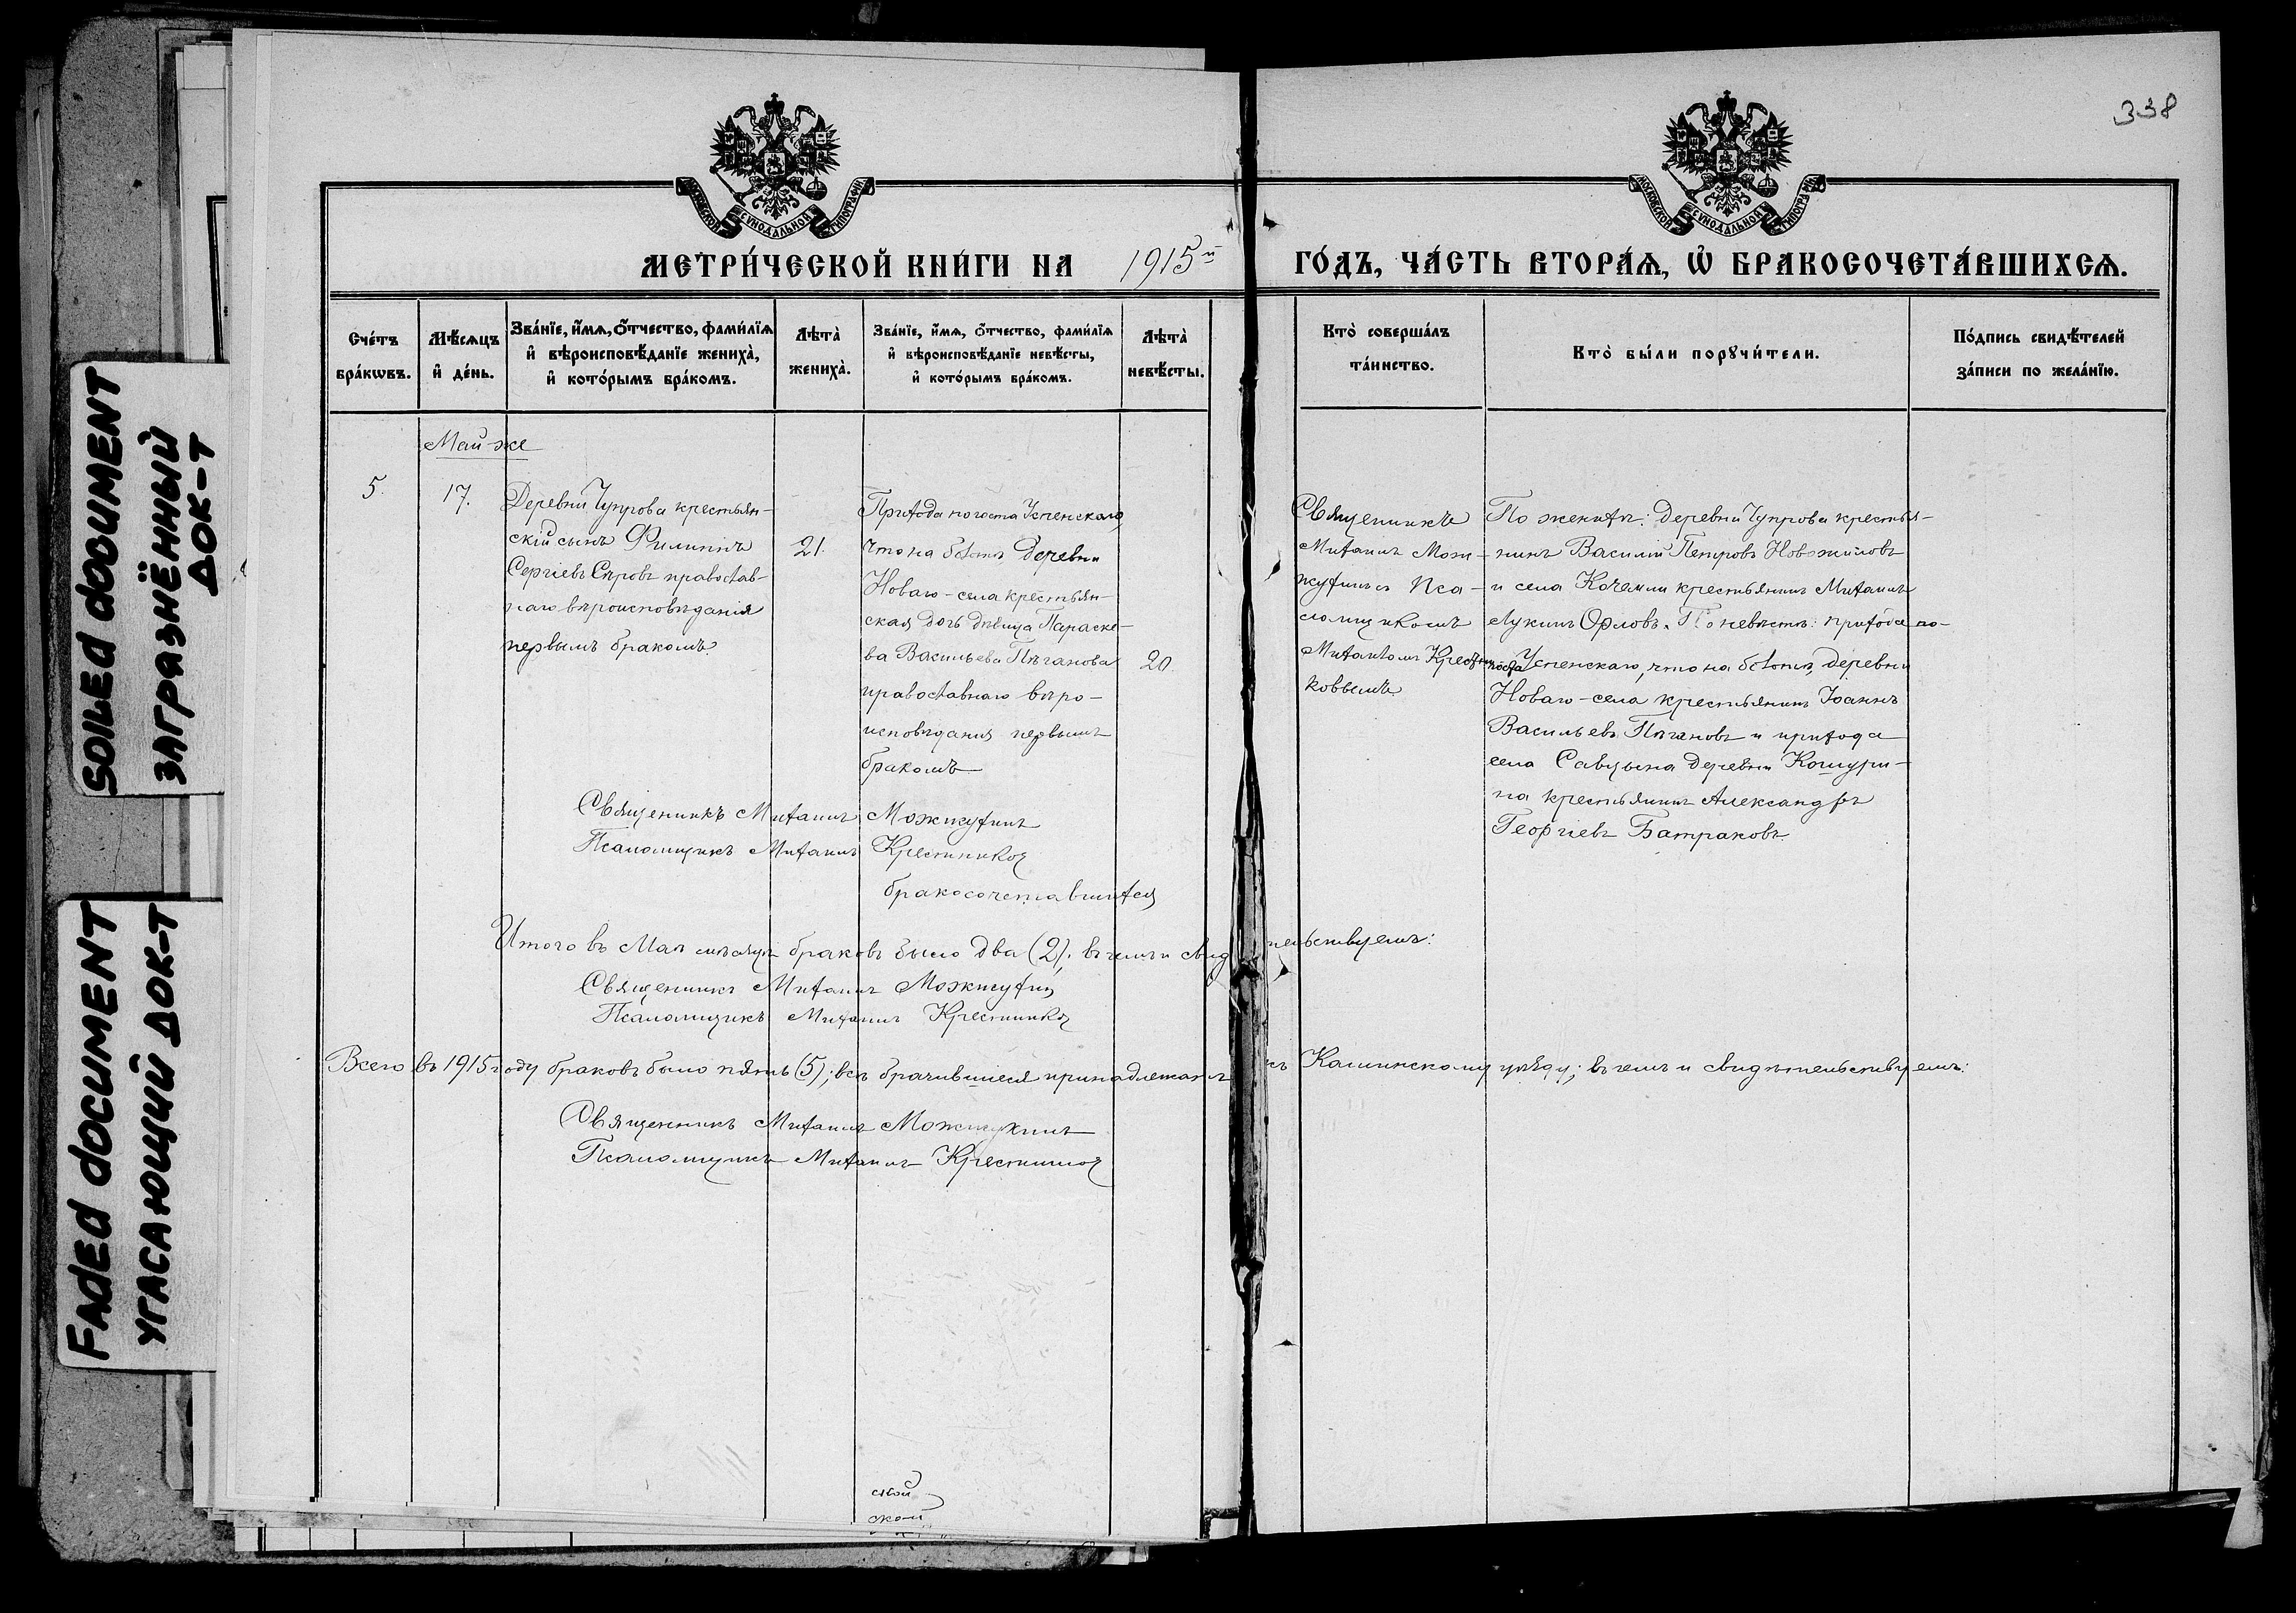 SOILEd dOCUMENT
ЗАГРАЗНЁННЫЙ
ДОК-Т
FAdEd dOCUMENT
УГАСАЮЩИЙ ДОК-Т
338
МОСКОВСКОЙ СѴНОДАЛЬНОЙ ТИПОГРАФІИ
МОСКОВСКОЙ СѴНОДАЛЬНОЙ ТИПОГРАФІИ
МЕТРИ́ЧЕСКОЙ КНИ́ГИ НА 1915й ГО́ДЪ, ЧА́СТЬ ВТОРА́Ѧ, Ѡ҆ БРАКОСОЧЕТА́ВШИХСѦ.
Сче́тъ
бра́кѡвъ.
Мѣ́сѧцъ
и҆ де́нь.
Зва́нїе, и҆́мѧ, ѻ҆́тчество, фами́лїѧ
и҆ вѣроисповѣ́данїе жениха̀,
и҆ кото́рымъ бра́комъ.
Лѣта̀
жениха̀.
Зва́нїе, и҆́мѧ, ѻ҆́тчество, фами́лїѧ
и҆ вѣроисповѣ́данїе невѣ́сты,
и҆ кото́рымъ бра́комъ.
Лѣта̀
невѣ́сты.
Кто̀ соверша́лъ
та́инство.
Кто̀ бы́ли порꙋчи́тели.
По́дпись свидѣ́телей
за́писи по жела́нїю.
Май-же
5.
17.
Деревни Чупрова крестьян-
скій сынъ Филиппъ
Сергіевъ Сѣровъ православ-
наго вѣроисповѣданія
первымъ бракомъ.
21.
Прихода погоста Успенскаго,
что на болотѣ, деревни
Новаго-села крестьян-
ская дочь дѣвица Параске-
ва Васильева Пѣганова
православнаго вѣро-
исповѣданія первымъ
бракомъ
20.
Священникъ
Михаилъ Мож-
жухинъ съ Пса-
ломщикомъ
Михаиломъ Крестни-
ковымъ.
По женихѣ: деревни Чупрова крестья-
нинъ Василій Петровъ Новожиловъ
и села Кочемли крестьянинъ Михаилъ
Лукинъ Орловъ. По невѣстѣ: прихода по-
госта Успенскаго, что на болотѣ, деревни
Новаго-села крестьянинъ Іоаннъ
Васильевъ Пѣгановъ и прихода
села Савцына деревни Кошури-
на крестьянинъ Александръ
Георгіевъ Батраковъ.
Священникъ Михаилъ Можжухинъ
Псаломщикъ Михаилъ Крестников
бракосочетавшихся
Итого въ Маѣ мѣсяцѣ браковъ было два (2); въ чемъ и свидѣтельствуемъ:
Священникъ Михаилъ Можжухин
Псаломщикъ Михаилъ Крестников
Всего въ 1915 году браковъ было пять (5); всѣ брачившіеся принадлежатъ къ Калязинскому уѣзду; въ чемъ и свидѣтельствуемъ:
Священникъ Михаилъ Можжухинъ
Псаломщикъ Михаилъ Крестников
ской